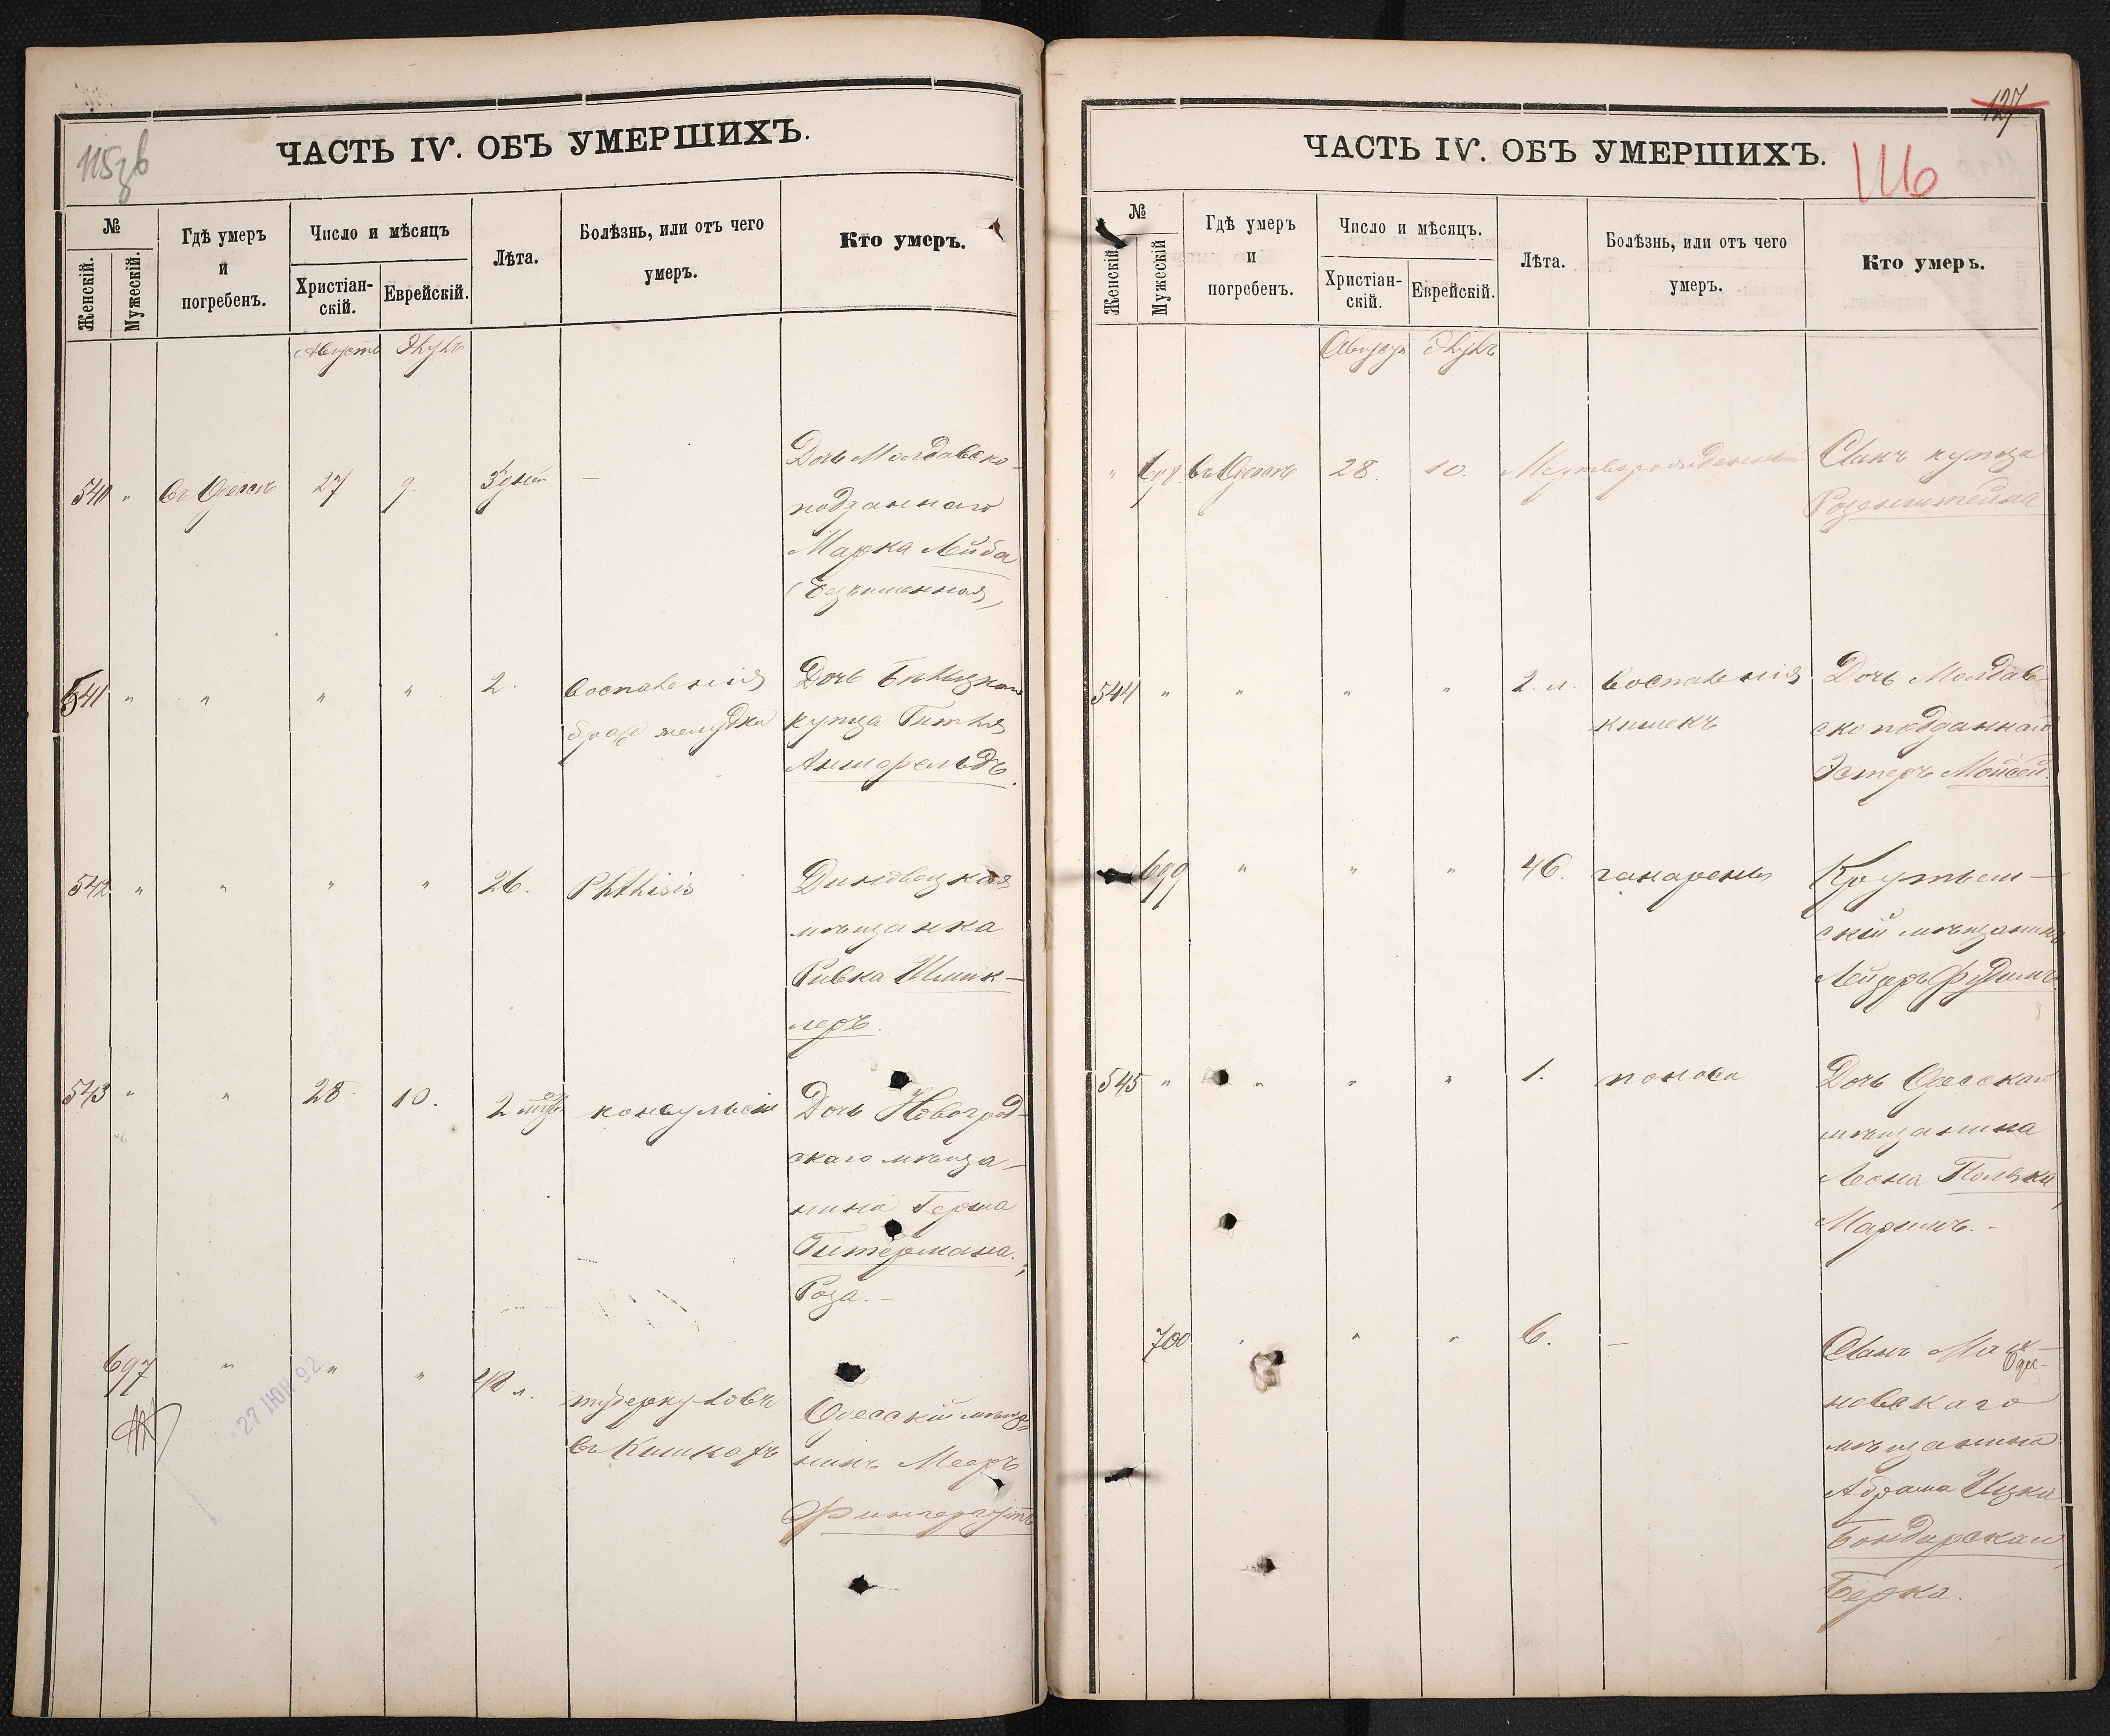 115 об
ЧАСТЬ IV. ОБЪ УМЕРШИХЪ.
№
Женскій.
Мужескій.
Гдѣ умеръ
и
погребенъ.
Число и мѣсяцъ
Христіан-
скій.
Еврейскій.
Лѣта.
Болѣзнь, или отъ чего
умеръ.
Кто умеръ.
Августъ Элулъ
540 " Въ Одессѣ 27 9. 3 дней —
Дочь Молдавско-
подданнаго
Марка Лейба
(безъименная)
541 " " " " 2. воспаленія
желудка
Дочь
купца
542 " " " " 26. Phthisis
мѣщанка
Ривка Шпик-
леръ.
543 " " 28. 10. 2
Дочь Новоград-
скаго мѣща-
нина Герша
Гитермана,
Роза. —
697 " " " л.
туберкуловъ
въ Кишкахъ
Одесскій мѣща-
нинъ Мееръ
27 ІЮН 92
127
116
ЧАСТЬ IV. ОБЪ УМЕРШИХЪ.
№
Женскій
Мужескій
Гдѣ умеръ
и
погребенъ.
Число и мѣсяцъ.
Христіан-
скій.
Еврейскій.
Лѣта.
Болѣзнь, или отъ чего
умеръ.
Кто умеръ.
Августъ Элулъ
" 698 Въ Одессѣ 28. 10. Мертворожденный
Сынъ купца
Розенштейна
544 " " " " 2. л. воспаленія
кишекъ
Дочь Молдав-
ско подданнаго
Эстеръ Мойсей.
699 " " " 46. гангрены
скій мѣщанинъ
Лейзеръ
545 " " " " 1. поноса
Дочь Одесскаго
мѣщанина
Поляка,
700 " " " 6. —
Сынъ
новскаго
мѣщанина
Абрама Ицки
Бондарскаго,
Берко.